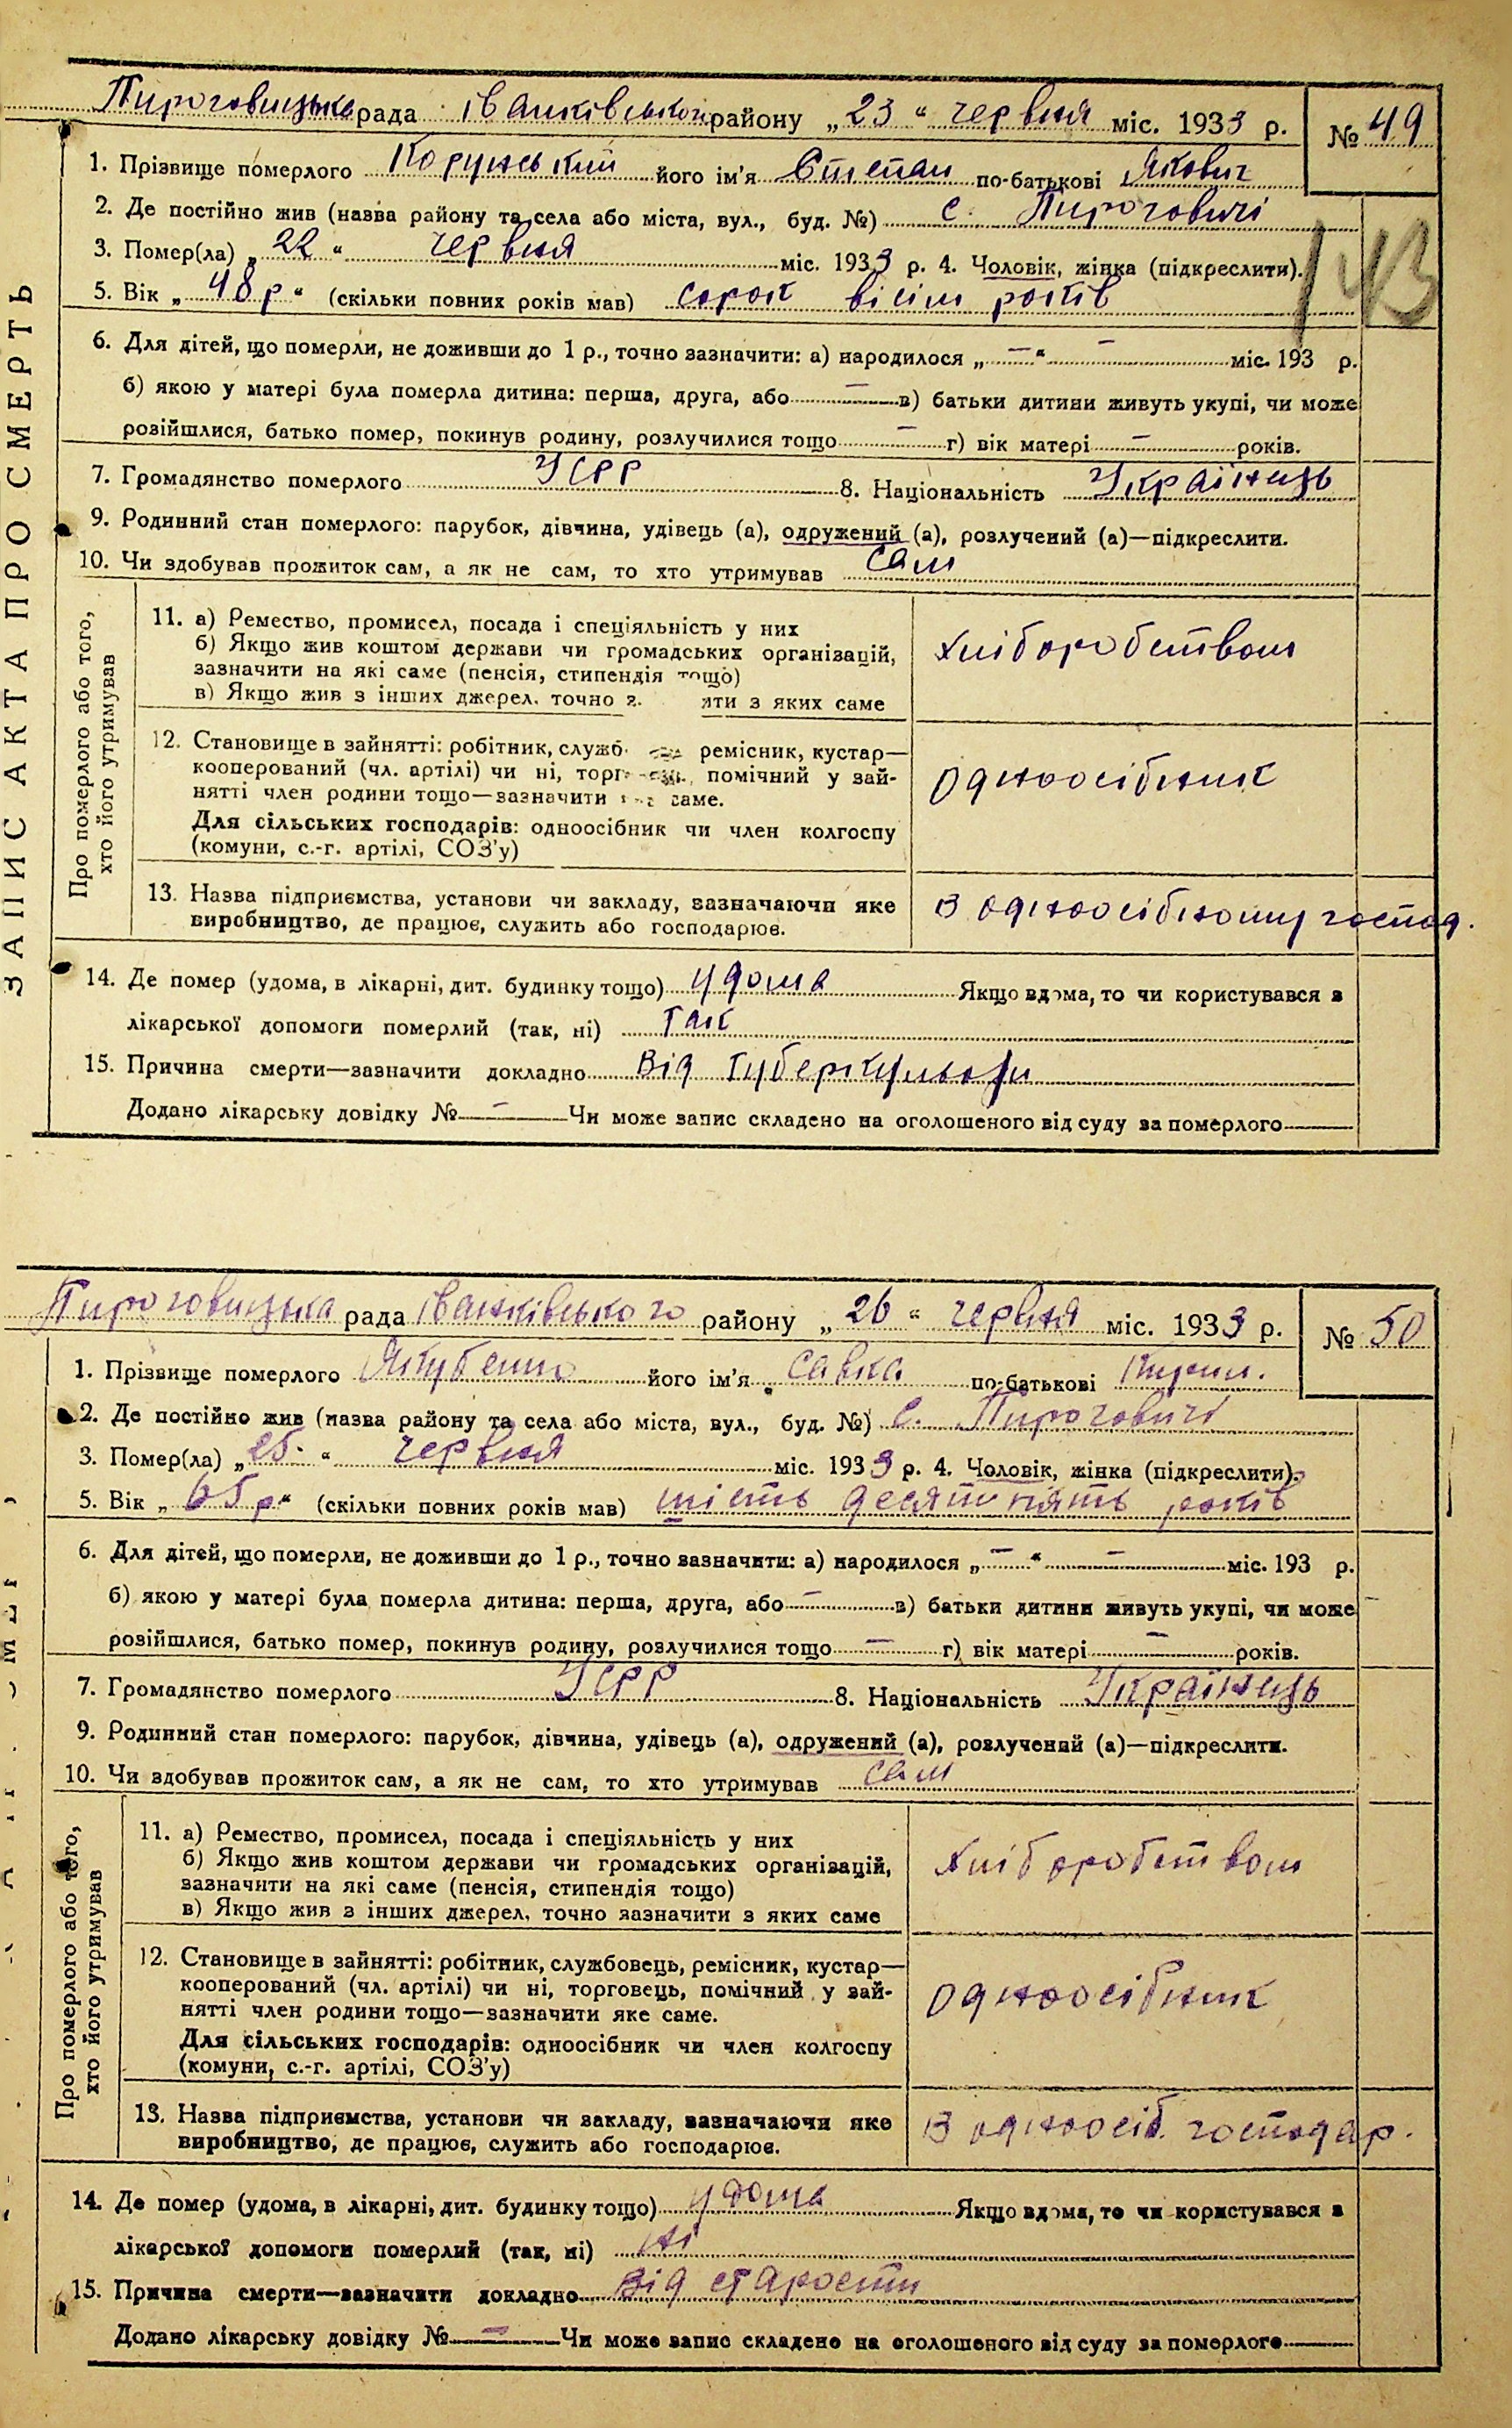 Пироговицька рада Іванківського району „23“ червня міс. 1933 р. № 49
1. Прізвище померлого його ім'я Степан по-батькові Якович
2. Де постійно жив (назва району та села або міста, вул., буд. №) с. Пироговичі
3. Помер(ла) „22“ червня міс. 1933 р. 4. Чоловік, жінка (підкреслити).
5. Вік „48 р“ (скільки повних років мав) сорок вісім років
6. Для дітей, що померли, не доживши до 1 р., точно зазначити: а) народилося „—“ — міс. 193 р.
б) якою у матері була померла дитина: перша, друга, або — в) батьки дитини живуть укупі, чи може
розійшлися, батько помер, покинув родину, розлучилися тощо — г) вік матері — років.
7. Громадянство померлого УСРР 8. Національність Українець
9. Родинний стан померлого: парубок, дівчина, удівець (а), одружений (а), розлучений (а)—підкреслити.
10. Чи здобував прожиток сам, а як не сам, то хто утримував сам
ЗАПИС АКТА ПРО СМЕРТЬ
Про померлого або того,
хто його утримував
11. а) Ремество, промисел, посада і спеціяльність у них
б) Якщо жив коштом держави чи громадських організацій,
зазначити на які саме (пенсія, стипендія тощо)
в) Якщо жив з інших джерел, точно з яти з яких саме
хліборобством
12. Становище в зайнятті: робітник, служб ремісник, кустар—
кооперований (чл. артілі) чи ні, торговець, помічний у зай-
нятті член родини тощо—зазначити саме.
Для сільських господарів: одноосібник чи член колгоспу
(комуни, с.-г. артілі, СОЗ'у)
одноосібник
13. Назва підприємства, установи чи закладу, зазначаючи яке
виробництво, де працює, служить або господарює.
В одноосібному господ.
14. Де помер (удома, в лікарні, дит. будинку тощо) удома Якщо вдома, то чи користувався з
лікарської допомоги померлий (так, ні) так
15. Причина смерти—зазначити докладно від туберкульозу
Додано лікарську довідку № — Чи може запис складено на оголошеного від суду за померлого
Пироговицька рада Іванківського району „26“ червня міс. 1933 р. № 50
1. Прізвище померлого Якубенко його ім'я Савка по-батькові
2. Де постійно жив (назва району та села або міста, вул., буд. №) с. Пироговичі
3. Помер(ла) „25“ червня міс. 1933 р. 4. Чоловік, жінка (підкреслити).
5. Вік „65 р“ (скільки повних років мав) шість десят пять років
6. Для дітей, що померли, не доживши до 1 р., точно зазначити: а) народилося „—“ — міс. 193 р.
б) якою у матері була померла дитина: перша, друга, або — в) батьки дитини живуть укупі, чи може
розійшлися, батько помер, покинув родину, розлучилися тощо — г) вік матері — років.
7. Громадянство померлого УСРР 8. Національність Українець
9. Родинний стан померлого: парубок, дівчина, удівець (а), одружений (а), розлучений (а)—підкреслити.
10. Чи здобував прожиток сам, а як не сам, то хто утримував сам
Про померлого або того,
хто його утримував
11. а) Ремество, промисел, посада і спеціяльність у них
б) Якщо жив коштом держави чи громадських організацій,
зазначити на які саме (пенсія, стипендія тощо)
в) Якщо жив з інших джерел, точно зазначити з яких саме
хліборобством
12. Становище в зайнятті: робітник, службовець, ремісник, кустар—
кооперований (чл. артілі) чи ні, торговець, помічний у зай-
нятті член родини тощо—зазначити яке саме.
Для сільських господарів: одноосібник чи член колгоспу
(комуни, с.-г. артілі, СОЗ'у)
одноосібник
13. Назва підприємства, установи чи закладу, зазначаючи яке
виробництво, де працює, служить або господарює.
В одноосіб. господар.
14. Де помер (удома, в лікарні, дит. будинку тощо) удома Якщо вдома, то чи користувався з
лікарської допомоги померлий (так, ні) ні
15. Причина смерти—зазначити докладно від старости
Додано лікарську довідку № — Чи може запис складено на оголошеного від суду за померлого